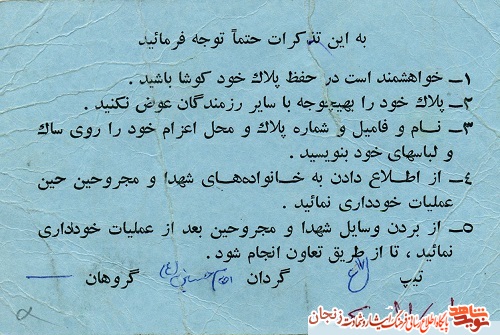 به این تذکرات حتماً توجه فرمائید
۱ــ خواهشمند است در حفظ پلاك خود کوشا باشید .
۲ــ پلاك خود را بهیچوجه با سایر رزمندگان عوض نکنید .
۳ــ نــام و فامیل و شماره پلاك و محل اعزام خود را روی ساك
و لباسهای خود بنویسید .
۴ــ از اطــلاع دادن به خـانواده‌های شهدا و مجروحین حین
عملیات خودداری نمائید .
۵ــ از بردن وسایل شهدا و مجروحین بعد از عملیات خودداری
نمائید ، تا از طریق تعاون انجام شود .
تیپ گردان امام حسین (ع) گروهان
شاهد
نوید
پایگاه اطلاع رسانی فرهنگ ایثار و شهادت زنجان